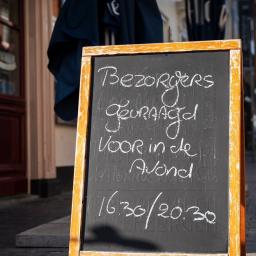 Bezorgers
gevraagd
voor in de
avond
16.30/20.30